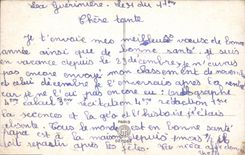 La Guérinière. Le 31
Chère tante
Je t'envoie mes meilleurs vœux de bonne
année ainsi que de bonne santé. Je suis
en vacance depuis le 23 décembre je n'ai
pas encore envoyé mon classement de novembre
et celui décembre je l'enverrai après la rentrée
car je ne l'ai pas encore eu: orthographe
4ème calcul 3ème récitation 4ème rédaction 1ère
la seconde et la géo et l'histoire
Tout le monde est en bonne santé
papa est à la maison depuis
repartir après les fêtes.